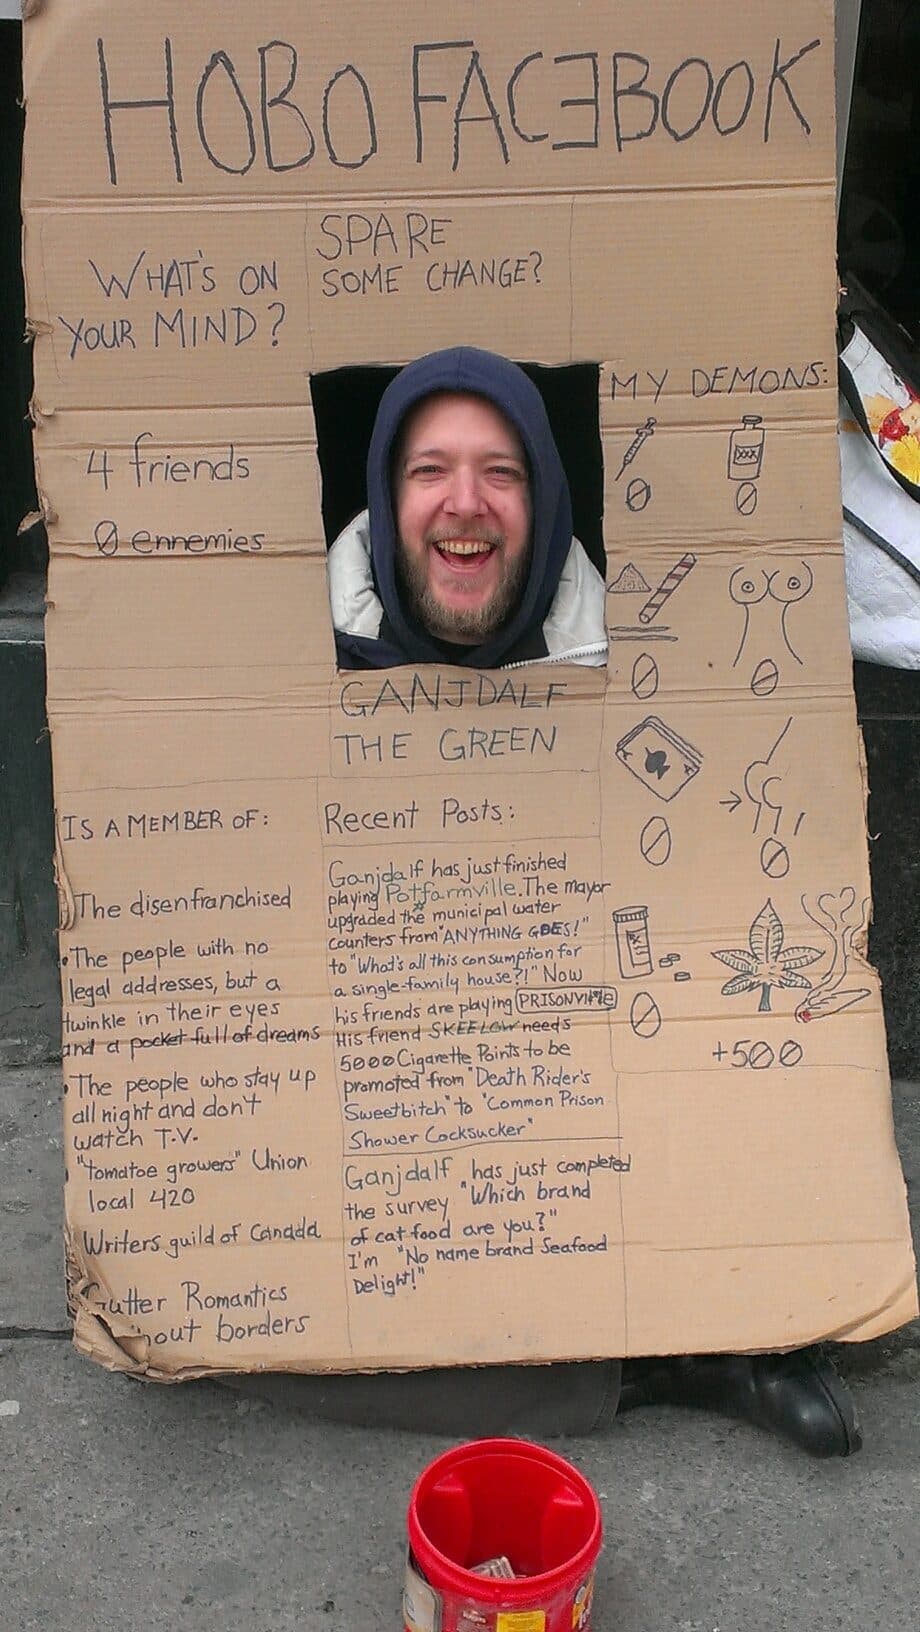 HOBO FACEBOOK
WHAT'S ON
YOUR MIND?
SPARE
SOME CHANGE?
4 friends
0 ennemies
MY DEMONS:
XXX
0
0
0
0
A
A
0
0
RX
0
+500
GANJDALF
THE GREEN
IS A MEMBER OF:
The disenfranchised
•The people with no
legal addresses, but a
twinkle in their eyes
and a pocket full of dreams
•The people who stay up
all night and don't
watch T.V.
•"tomatoe growers" Union
local 420
Writers guild of Canada
Gutter Romantics
borders
Recent Posts:
Ganjdalf has just finished
playing Potfarmville. The mayor
upgraded the municipal water
counters from "ANYTHING GOES!"
to "What's all this consumption for
a single-family house?!" Now
his friends are playing PRISONVILLE
His friend SKEELOW needs
5000 Cigarette Points to be
promoted from "Death Rider's
Sweetbitch" to "Common Prison
Shower Cocksucker"
Ganjdalf has just completed
the survey "Which brand
of cat food are you?"
I'm "No name brand Seafood
Delight!"